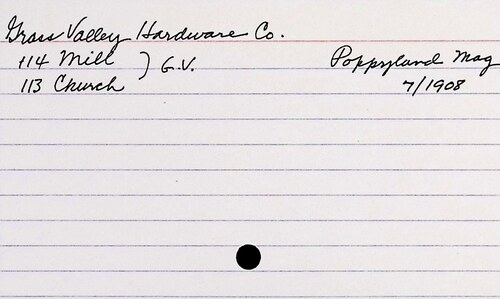 Grass Valley Hardware Co.
114 Mill } G.V. Poppyland Mag
113 Church 7/1908